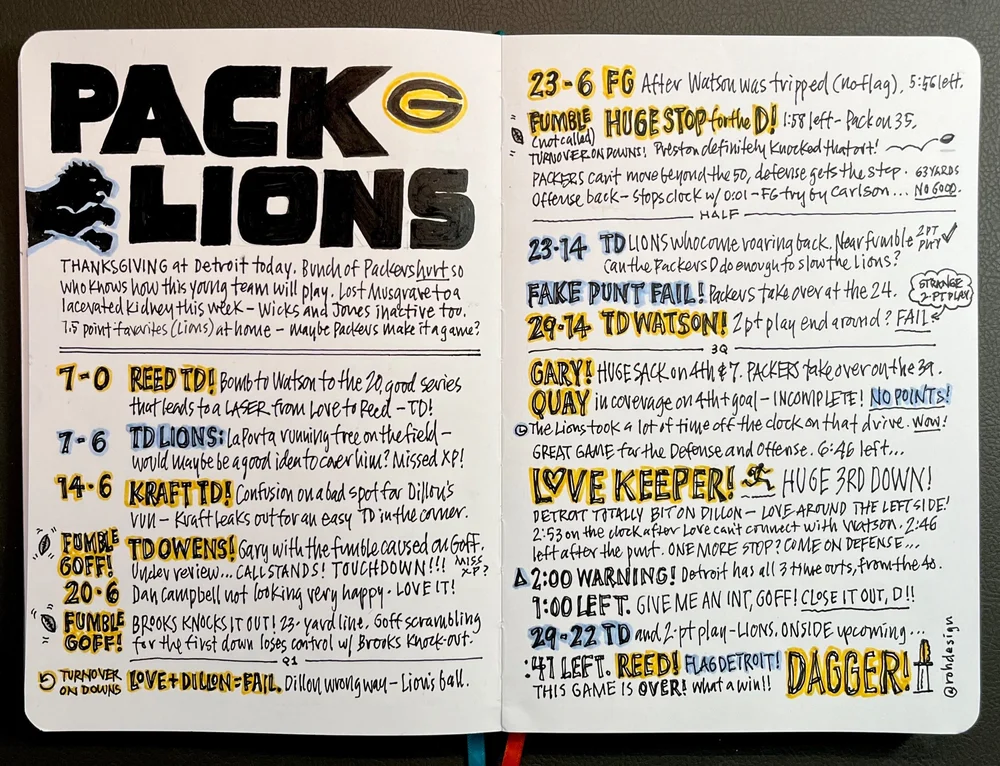 PACK G
LIONS
THANKSGIVING at Detroit today. Bunch of Packers hurt so
who knows how this young team will play. Lost Musgrave to a
lacerated kidney this week – Wicks and Jones inactive too.
7.5 point favorites (Lions) at home – maybe Packers make it a game?
7-0 REED TD! Bomb to Watson to the 20, good series
that leads to a LASER from Love to Reed – TD!
7-6 TD LIONS: LaPorta running free on the field –
would maybe be a good idea to cover him? Missed XP!
14-6 KRAFT TD! Confusion on a bad spot for Dillon's
run – Kraft leaks out for an easy TD in the corner.
FUMBLE GOFF! TD OWENS! Gary with the fumble caused on Goff.
Under review... CALL STANDS! TOUCHDOWN!!! MISS XP?
20-6 Dan Campbell not looking very happy. LOVE IT!
FUMBLE GOFF! BROOKS KNOCKS IT OUT! 23-yard line. Goff scrambling
for the first down loses control w/ Brooks knock-out.
Q1
TURNOVER ON DOWNS LOVE + DILLON = FAIL. Dillon wrong way – Lion's ball.
23-6 FG After Watson was tripped (no flag), 5:56 left.
FUMBLE (not called) HUGE STOP for the D! 1:58 left – Pack on 35.
TURNOVER ON DOWNS! Preston definitely knocked that out!
PACKERS can't move beyond the 50, defense gets the stop.
Offense back – stops clock w/ 0:01 – FG try by Carlson... 63 YARDS NO GOOD.
HALF
23-14 TD LIONS who come roaring back. Near fumble 2 PT PLAY ✓
Can the Packers D do enough to slow the Lions?
FAKE PUNT FAIL! Packers take over at the 24.
STRANGE 2-PT PLAY
29-14 TD WATSON! 2 pt play end around? FAIL
3Q
GARY! HUGE SACK on 4th & 7. PACKERS take over on the 39.
QUAY in coverage on 4th + goal – INCOMPLETE! NO POINTS!
The Lions took a lot of time off the clock on that drive. Wow!
GREAT GAME for the Defense and Offense. 6:46 left...
LOVE KEEPER! HUGE 3RD DOWN!
DETROIT TOTALLY BIT ON DILLON – LOVE AROUND THE LEFT SIDE!
2:53 on the clock after Love can't connect with Watson. 2:46
left after the punt. ONE MORE STOP? COME ON DEFENSE...
2:00 WARNING! Detroit has all 3 time outs, from the 40.
1:00 LEFT. GIVE ME AN INT, GOFF! CLOSE IT OUT, D!!
29-22 TD and 2-pt play – LIONS. ONSIDE upcoming...
:41 LEFT. REED! FLAG DETROIT! DAGGER!
THIS GAME IS OVER! What a win!!
@rohdesign